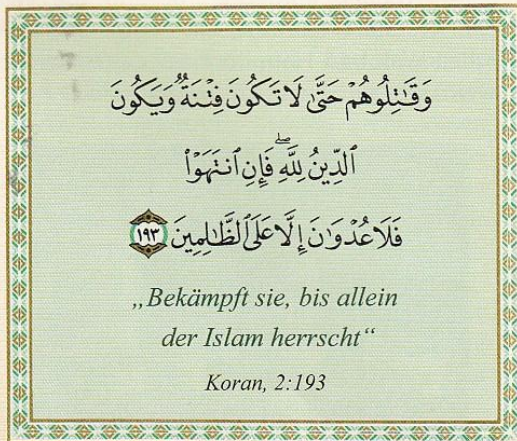 وَقَٰتِلُوهُمْ حَتَّىٰ لَا تَكُونَ فِتْنَةٌ وَيَكُونَ
ٱلدِّينُ لِلَّهِ ۖ فَإِنِ ٱنتَهَوْا۟
فَلَا عُدْوَٰنَ إِلَّا عَلَى ٱلظَّٰلِمِينَ ١٩٣
„Bekämpft sie, bis allein
der Islam herrscht“
Koran, 2:193